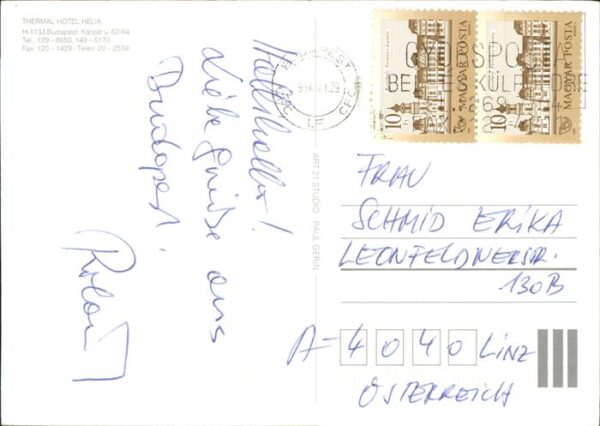 THERMAL HOTEL HELIA
H-1133 Budapest, Kárpát u. 62-64
Tel.: 129-8650, 149-5170
Fax: 120-1429 Telex: 20-2539
Hallihallo!
Liebe Grüße aus
Budapest,
Roland
ART 21 STUDIO PAUL GERIN
BUDAPEST
MAGYAR POSTA
10
MAGYAR POSTA
10
FRAU
SCHMID ERIKA
LEONFELDNERSTR.
130B
A-4040 LINZ
ÖSTERREICH